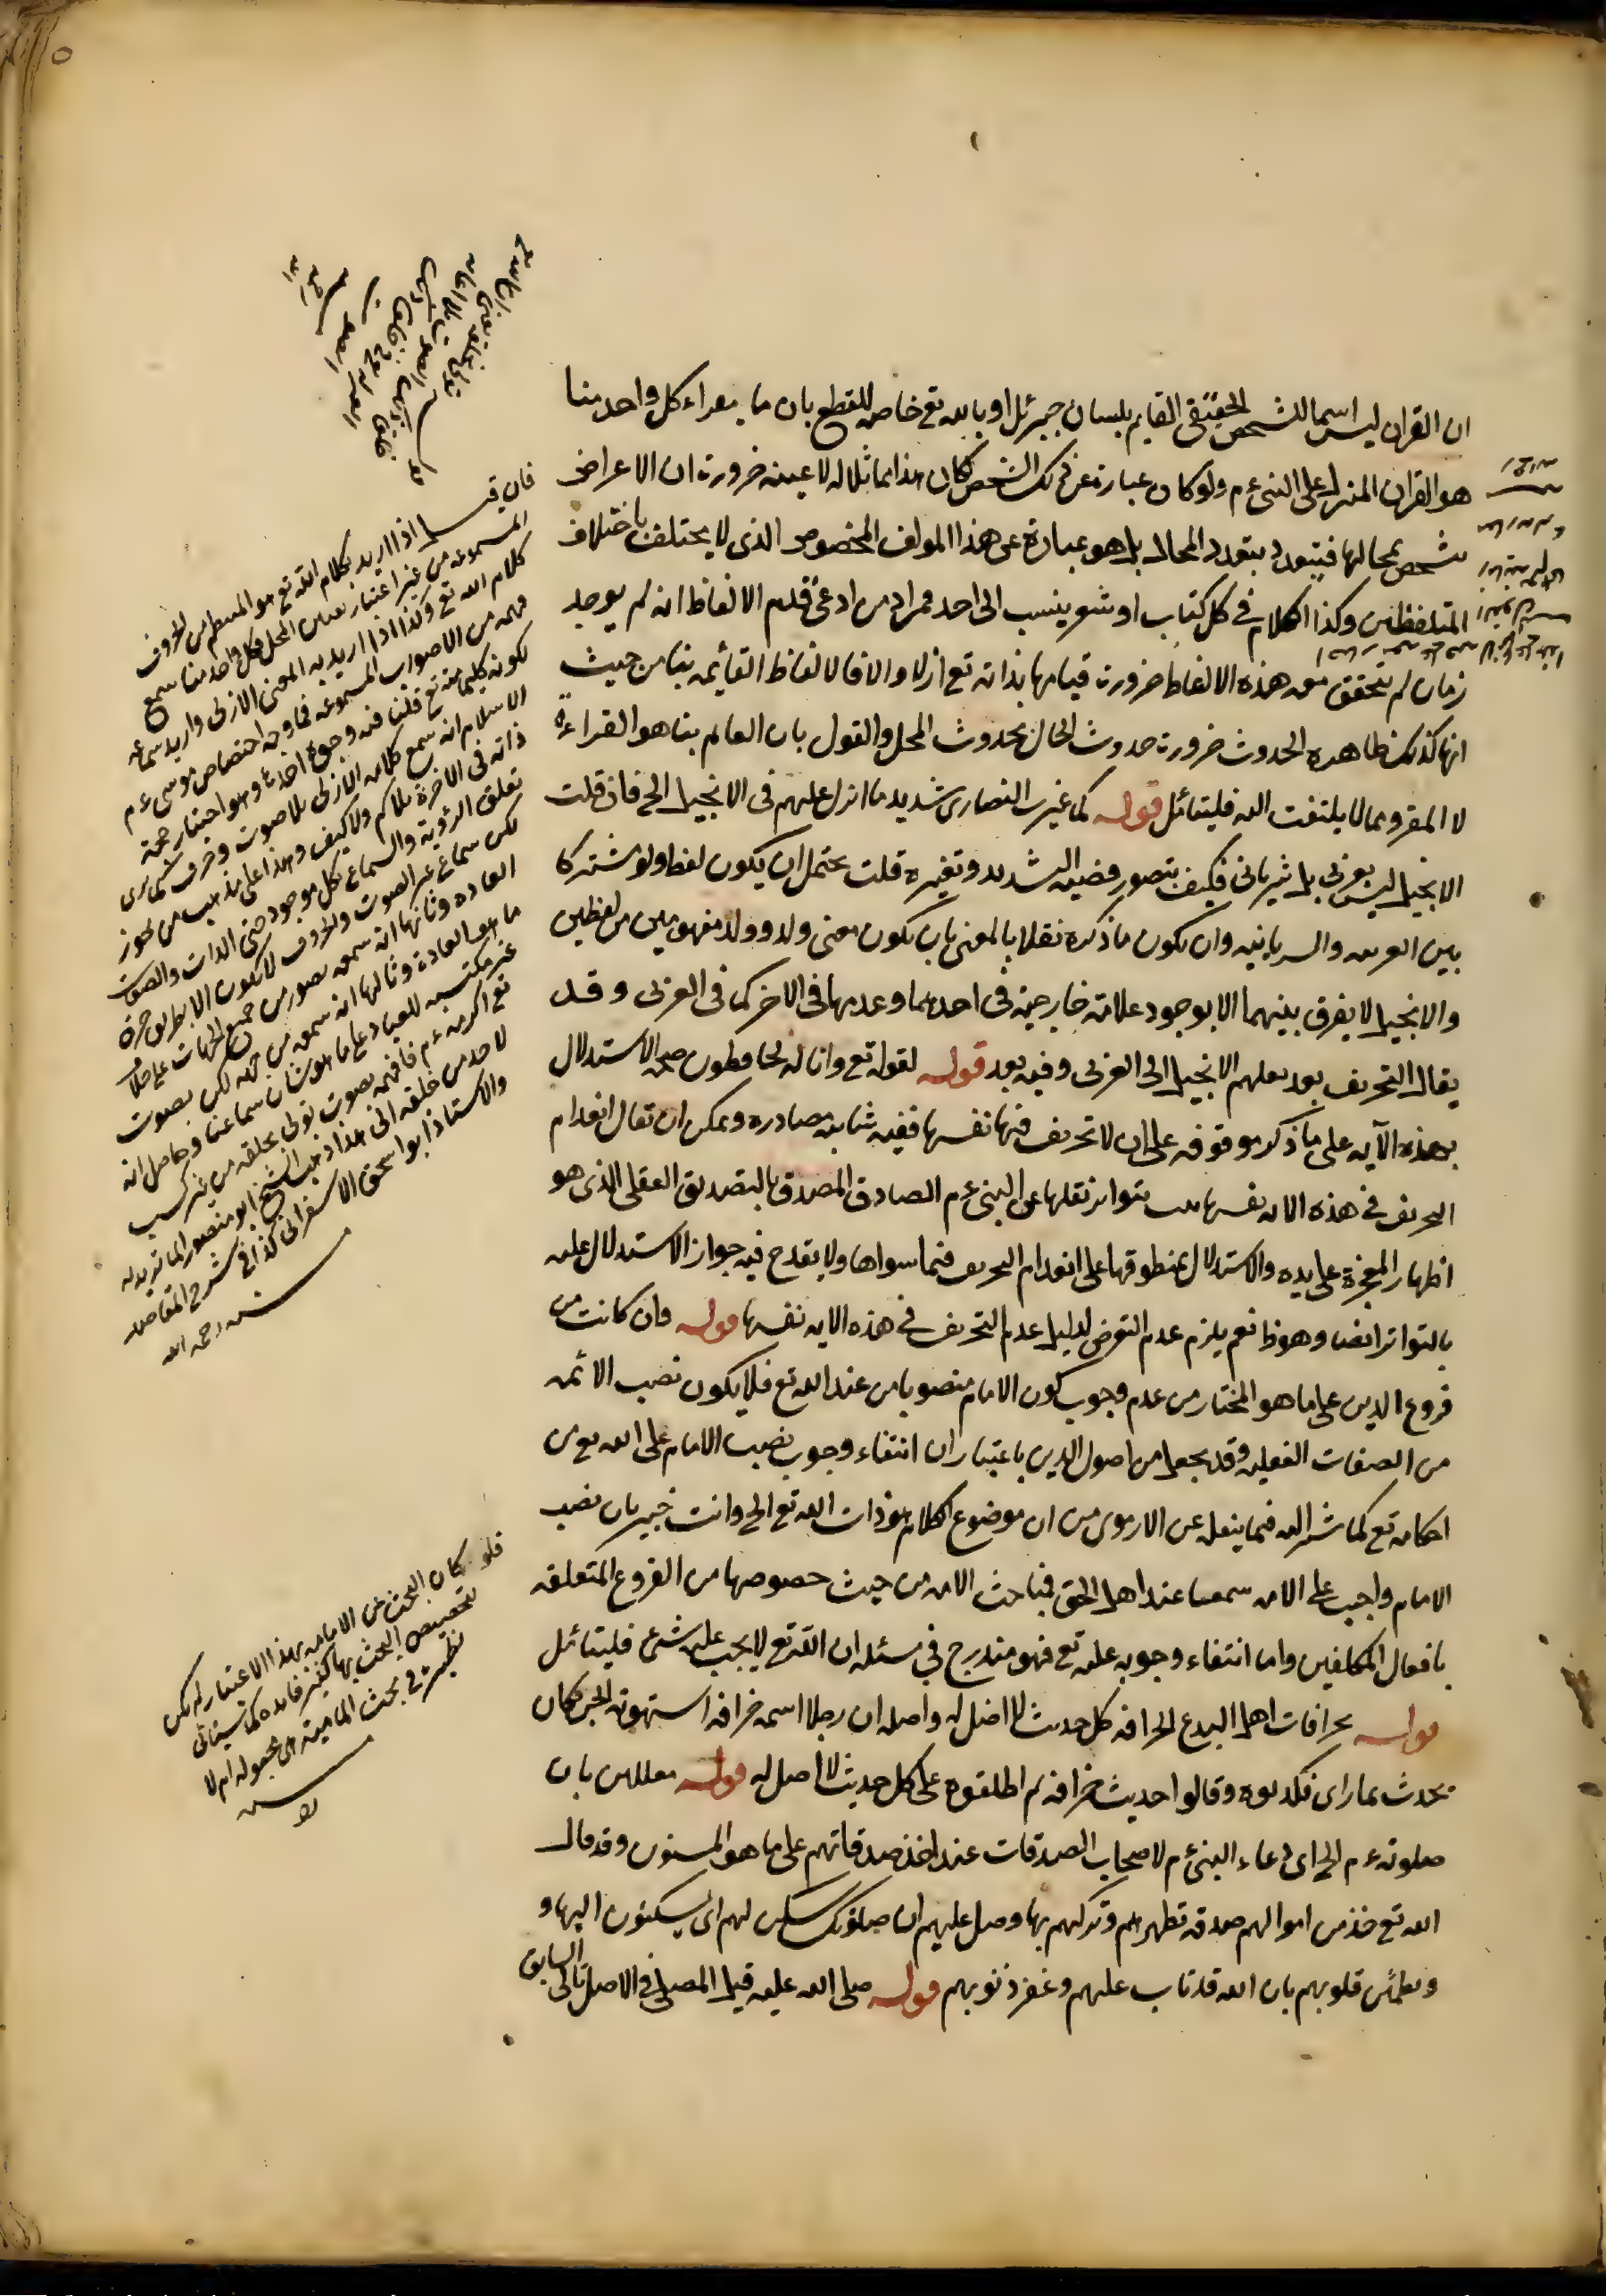 ان القران ليس اسما للشخص الحقيقى القايم بلسان جبرئل او بالله تع خاص للقطع بان ما يقراء كل واحد منا
هو القران المنزل على النبى ء م ولو كان عبارة عن ذلك الشخص لكان هذا مماثلا له لا عينه ضرورت ان الاعراض
تشخص بمحالها فيتعدد بتعدد المحال بل هو عبارة عن هذا المولف المخصوص الذى لا يختلف باختلاف
المتلفظين وكذا الكلام فى كل كتاب او شعر ينسب الى احد فمراد من ادعى قدم الالفاظ انه لم يوجد
زمان لم يتحقق معه هذه الالفاظ ضرورت قيامها بذاته تع ازلا والا فالالفاظ القائمه بنا من حيث
انها كذلك ظاهره الحدوث ضرورت حدوث الحال بحدوث المحل والقول بان القايم بنا هو القراءة
لا المقرو مما لا يلتفت اليه فليتائل قوله كما غيرت النصارى شديد ما انزل عليهم فى الانجيل الخ فان قلت
الانجيل ليس بعربى بل شريانى فكيف يتصور فضيه التشديد وتغيره قلت يحتمل ان يكون لفظ ولد مشتركا
بين العربيه والسريانيه وان يكون ما ذكره نقلا بالمعنى بان يكون معنى ولد و ولد مفهومين من لفظين
والانجيل لا يفرق بينهما الا بوجود علامة خارجية فى احدهما وعدمها فى الاخر كما فى العربى وقد
يقال التحريف بعد نقلهم الانجيل الى العربى وفيه بعد قوله لقوله تع وانا له لحافظون صحه الاستدلال
بهذه الآيه على ما ذكر موقوفه على ان لا تحريف فيها نفسها ففيه شايبه مصادره ويمكن ان يقال انعدام
التحريف فى هذه الايه نفسها ثبت بتواتر نقلها عن النبى ء م الصادق المصدق بالتصديق العقلى الذى هو
اظهار المعجزة على يده والاستدلال بمنطوقها على انعدام التحريف فيما سواها ولا يقدح فيه جواز الاستدلال عليه
بالتواتر ايضا وهو ظ نعم يلزم عدم التعرض لدليل عدم التحريف فى هذه الايه نفسها قوله وان كانت من
فروع الدين على ما هو المختار من عدم وجوب كون الامام منصوبا من عند الله تع فلا يكون نصب الائمه
من الصفات الفعليه وقد يجعل من اصول الدين باعتبار ان انتفاء وجوب نصب الامام على الله تع من
احكامه تع كما يشير اليه فيما ينقله عن الارموى من ان موضوع الكلام هو ذات الله تع الخ وانت خبير بان نصب
الامام واجب على الامه سمعا عند اهل الحق فمباحث الامه من حيث خصوصها من الفروع المتعلقه
بافعال المكلفين واما انتفاء وجوبه عليه تع فهو مندرج فى مسئله ان الله تع لا يجب عليه شئ فليتائل
قوله بخرافات اهل البدع الخرافه كل حديث لا اصل له واصله ان رجلا اسمه خرافه استهوته الجن كان
يحدث بما راى فكذبوه وقالوا حديث خرافه ثم اطلقوه على كل حديث لا اصل له قوله معللين بان
صلوته ء م الخ اى دعاء النبى ء م لاصحاب الصدقات عند اخذ صدقاتهم على ما هو المسنون وقد قال
الله تع خذ من اموالهم صدقه تطهرهم وتزكيهم بها وصل عليهم ان صلوتك سكن لهم اى يسكنون اليها و
وتطمئن قلوبهم بان الله قد تاب عليهم وغفر ذنوبهم قوله صلى الله عليه قيل المصلى فى الاصل تالى السابق
فان قيل اذا اريد بكلام الله تع هو المنتظم من الحروف
المسموعه من غير اعتبار تعيين المحل فكل واحد منا سمع
كلام الله تع وكذا اذا اريد به المعنى الازلى واريد سماعه
فهمه من الاصوات المسموعه فما وجه اختصاص موسى ء م
بكونه كليما منه تع قلنا فيه وجوه احدها وهو اختيار حجة
الاسلام انه سمع كلامه الازلى بلا صوت وحرف كما يرى
ذاته فى الاخرة بلا كم ولا كيف وهذا على مذهب من يجوز
تعلق الرؤية والسماع بكل موجود حتى الذات والصفات
لكن سماع غير الصوت والحروف لا يكون الا بطريق خرق
العاده وثانيها انه سمعه بصوت من جميع الجهات على خلاف
ما هو العادة وثالثها انه سمعه من جهه لكن بصوت
غير مكتسب للعباد على ما هو شان سماعنا وحاصله انه
تع اكرمه ء م فافهمه بصوت تولى بخلقه من غير كسب
لاحد من خلقه الى هذا ذهب الشيخ ابو منصور الماتريديه
والاستاذ ابو اسحق الاسفراينى كذا فى شرح المقاصد
منه رحمه الله
فلو كان البحث عن الامامه بهذا الاعتبار لم يكن
لتخصيص البحث بها كثير فايده كما سيتائى
نظيره فى بحث الماهية هى مجعوله ام لا
منه